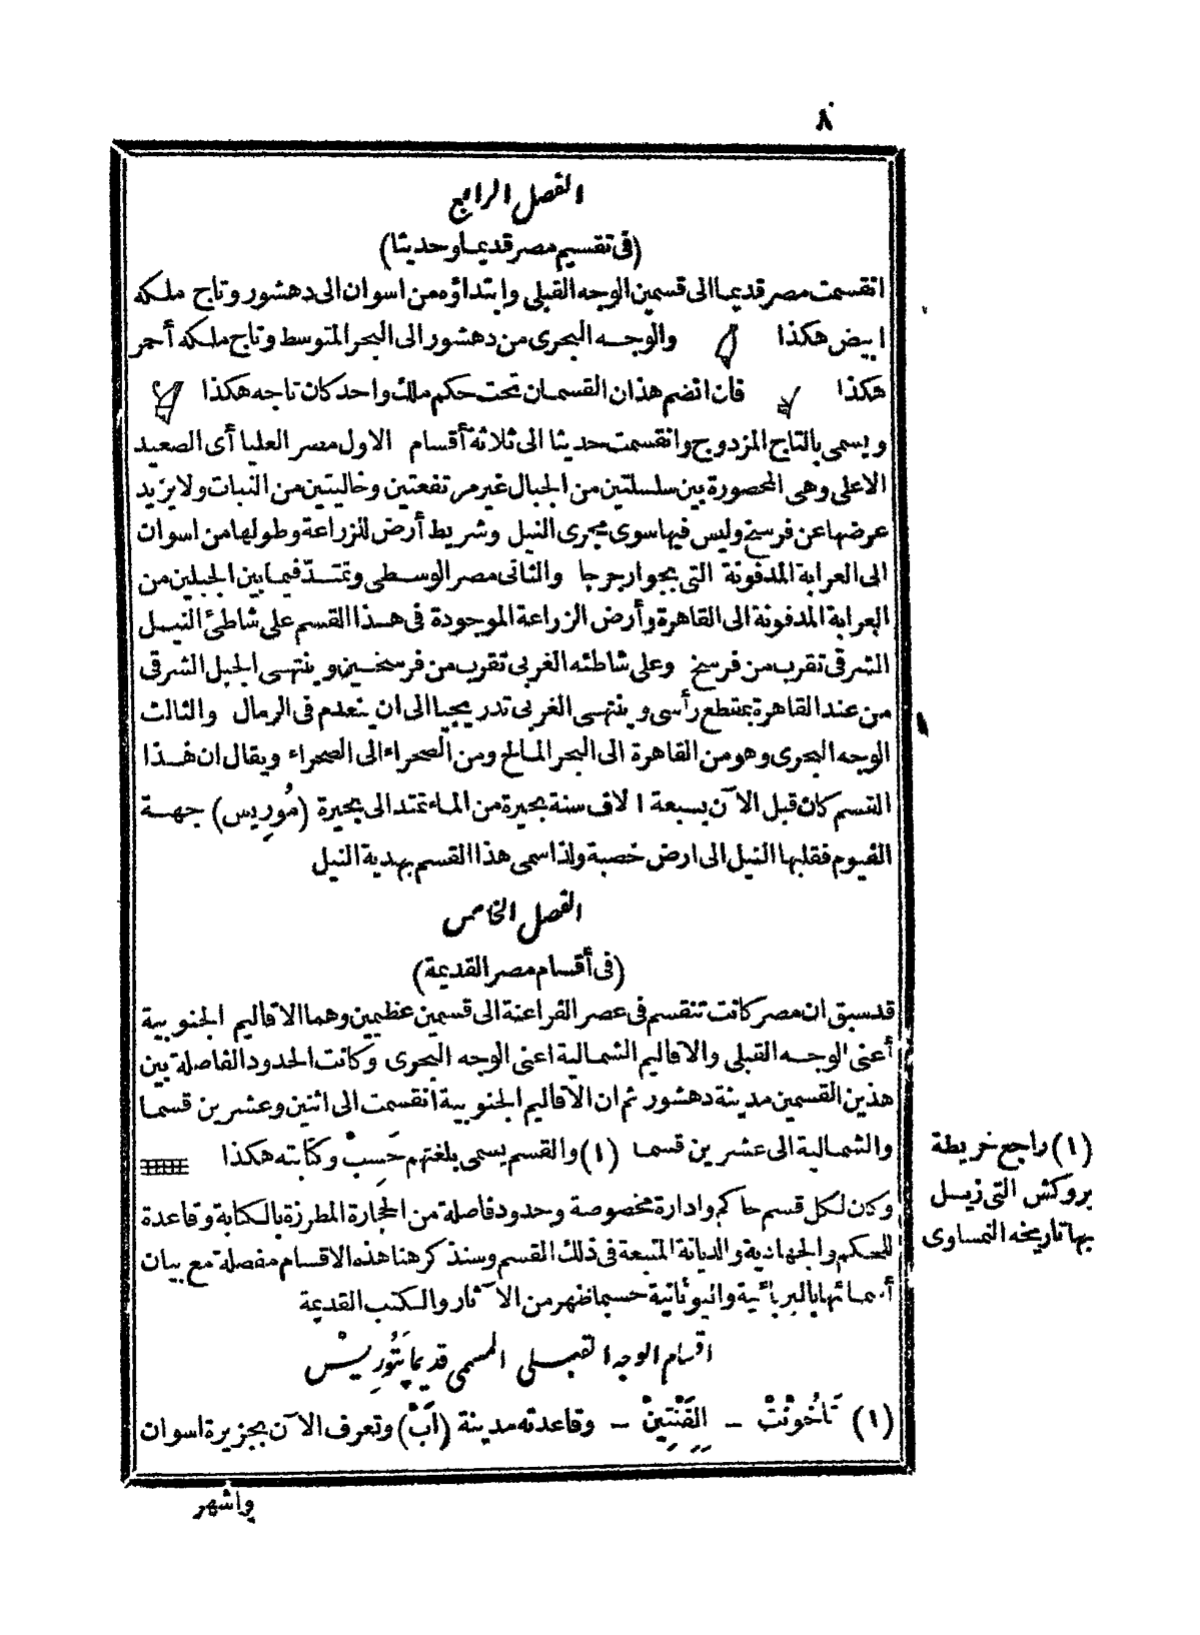 ٨
الفصل الرابع
(فى تقسيم مصر قديما وحديثا)
انقسمت مصر قديما الى قسمين الوجه القبلى وابتداؤه من اسوان الى دهشور وتاج ملكه
ابيض هكذا والوجه البحرى من دهشور الى البحر المتوسط وتاج ملكه أحمر
هكذا فان انضم هذان القسمان تحت حكم ملك واحد كان تاجه هكذا
ويسمى بالتاج المزدوج وانقسمت حديثا الى ثلاثة أقسام الاول مصر العليا أى الصعيد
الاعلى وهى المحصورة بين سلسلتين من الجبال غير مرتفعتين وخاليتين من النبات ولا يزيد
عرضها عن فرسخ وليس فيها سوى مجرى النيل وشريط أرض للزراعة وطولها من اسوان
الى العرابة المدفونة التى بجوار جرجا والثانى مصر الوسطى وتمتد فيما بين الجبلين من
العرابة المدفونة الى القاهرة وأرض الزراعة الموجودة فى هذا القسم على شاطئ النيل
الشرقى تقرب من فرسخ وعلى شاطئه الغربى تقرب من فرسخين وينتهى الجبل الشرقى
من عند القاهرة بمقطع رأسى وينتهى الغربى تدريجيا الى ان ينعدم فى الرمال والثالث
الوجه البحرى وهو من القاهرة الى البحر المالح ومن الصحراء الى الصحراء ويقال ان هذا
القسم كان قبل الآن بسبعة الاف سنة بحيرة من الماء تمتد الى بحيرة (مُورِيس) جهة
الفيوم فقلبها النيل الى ارض خصبة ولذا سمى هذا القسم بهدية النيل
الفصل الخامس
(فى أقسام مصر القديمة)
قد سبق ان مصر كانت تنقسم فى عصر الفراعنة الى قسمين عظيمين وهما الاقاليم الجنوبية
أعنى الوجه القبلى والاقاليم الشمالية اعنى الوجه البحرى وكانت الحدود الفاصلة بين
هذين القسمين مدينة دهشور ثم ان الاقاليم الجنوبية انقسمت الى اثنين وعشرين قسما
والشمالية الى عشرين قسما (١) والقسم يسمى بلغتهم حَسِبْ وكتابته هكذا
وكان لكل قسم حاكم وادارة مخصوصة وحدود فاصلة من الحجارة المطرزة بالكتابة وقاعدة
للحكم والجهادية والديانة المتبعة فى ذلك القسم وسنذكر هنا هذه الاقسام مفصلة مع بيان
أسمائها بالبربائية واليونانية حسبما ظهر من الآثار والكتب القديمة
اقسام الوجه القبلى المسمى قديما پَتُورِيسْ
(١) تَاخُونْتْ – اِلِفَنْتِينْ – وقاعدته مدينة (آبْ) وتعرف الآن بجزيرة اسوان
واشهر
(١) راجع خريطة
بروكش التى زيل
بها تاريخه النمساوى